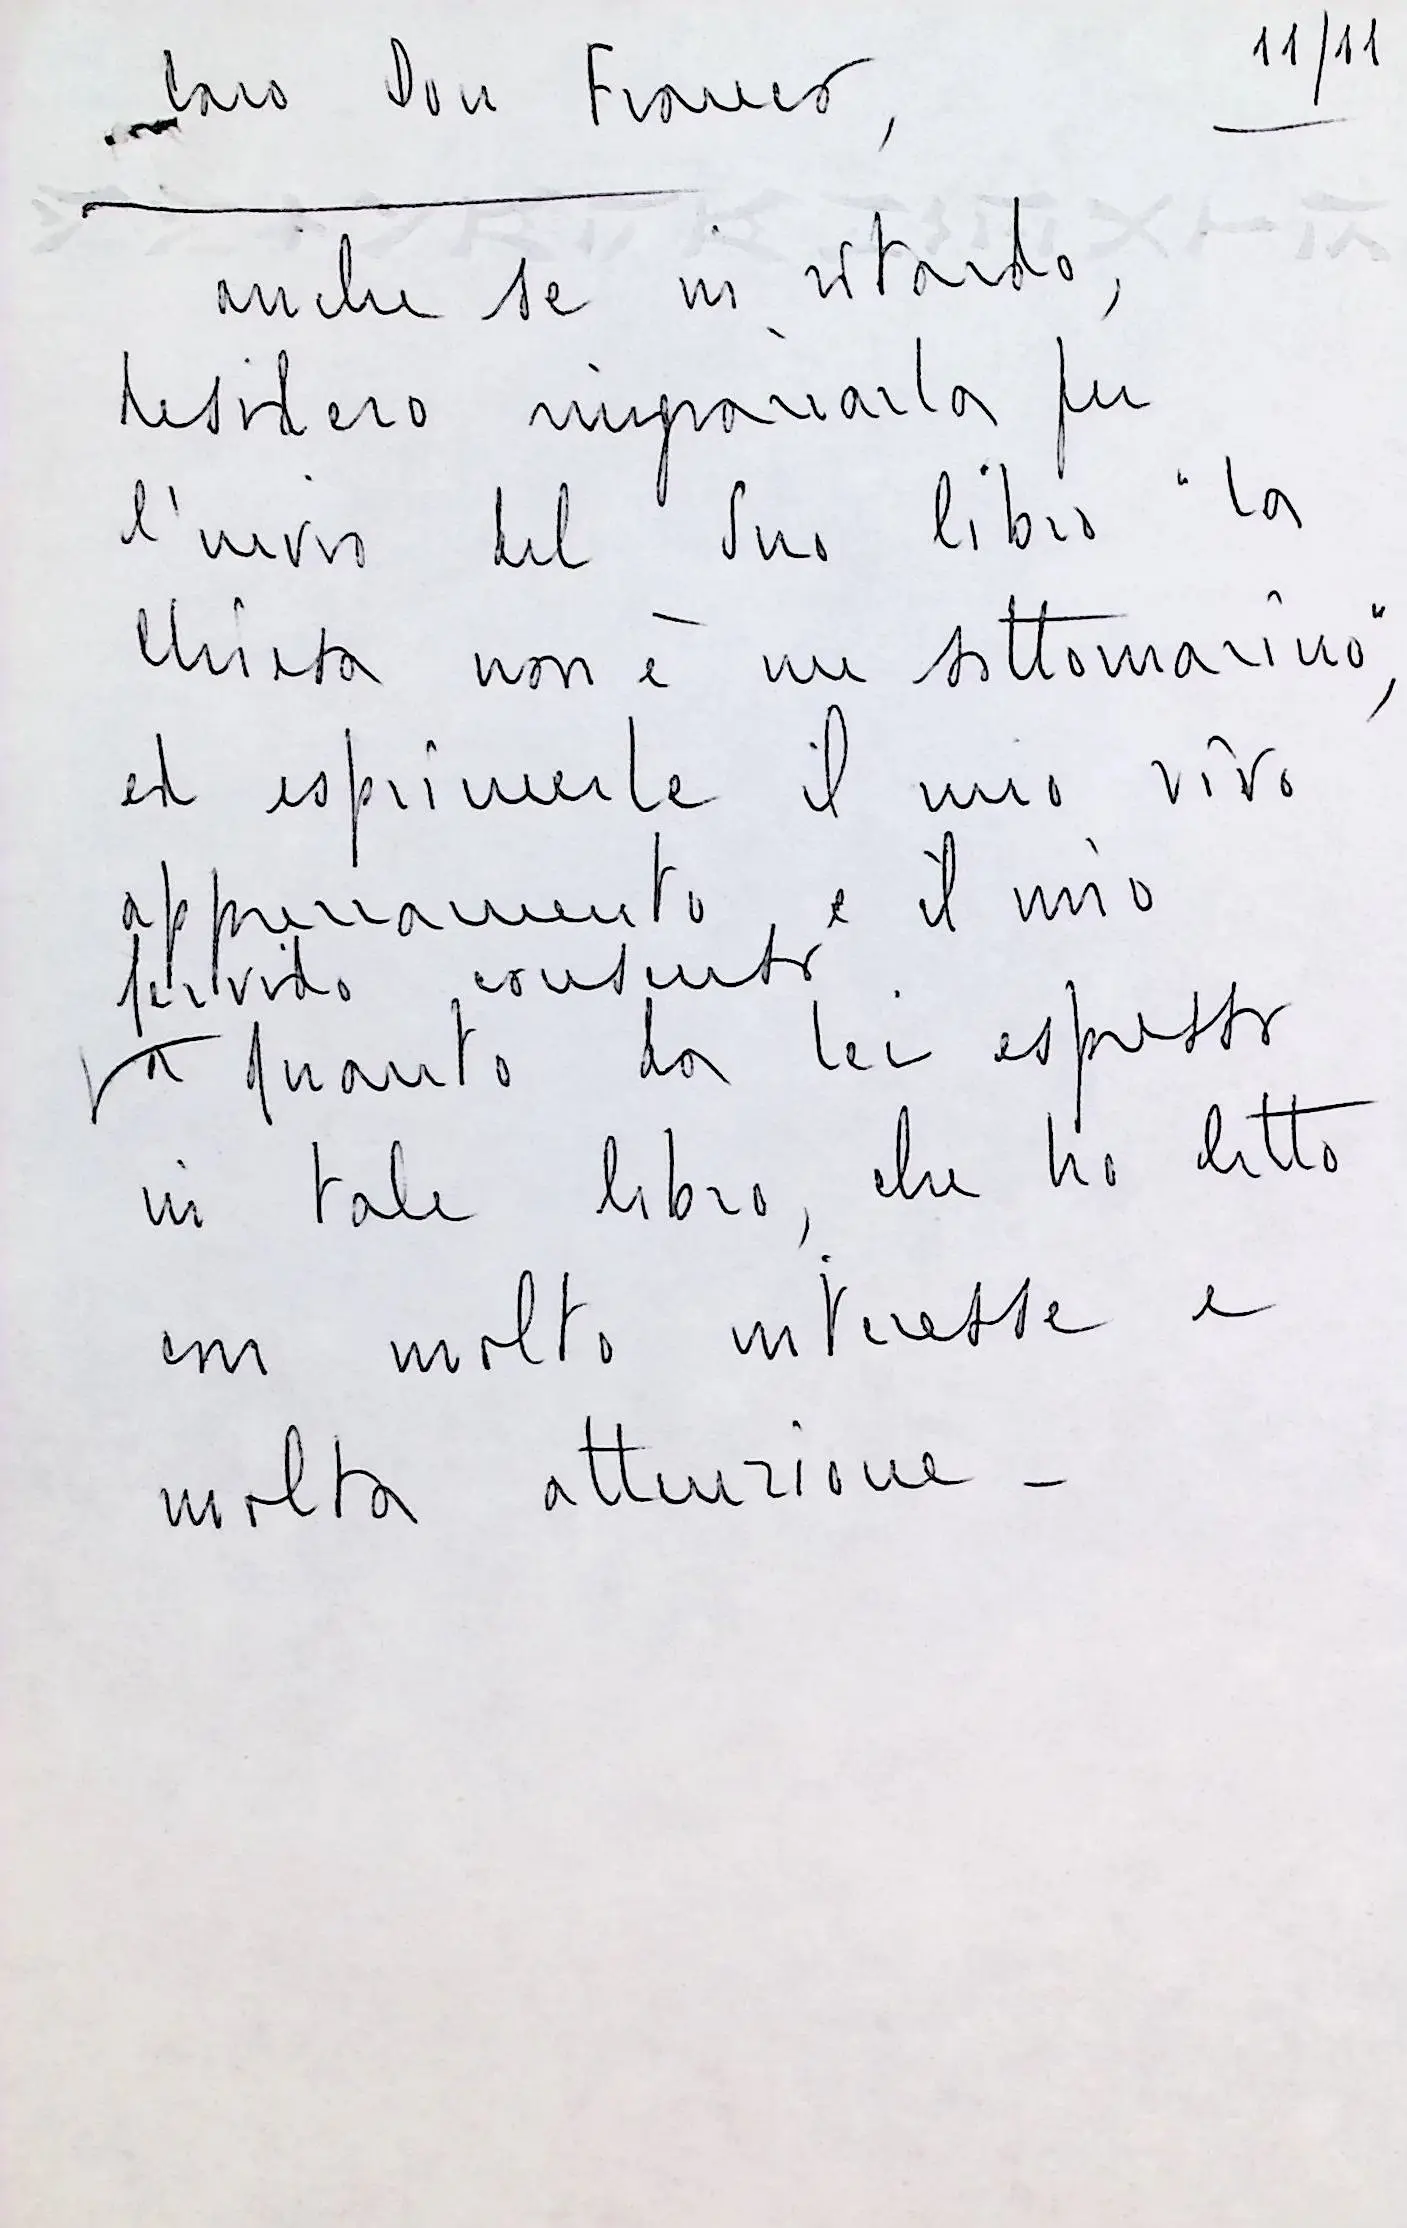 11/11
Caro Don Franco,
anche se in ritardo,
desidero ringraziarla per
l'invio del Suo libro "La
Chiesa non è un sottomarino",
ed esprimerle il mio vivo
apprezzamento e il mio
fervido consenso
a quanto da lei espresso
in tale libro, che ho letto
con molto interesse e
molta attenzione -